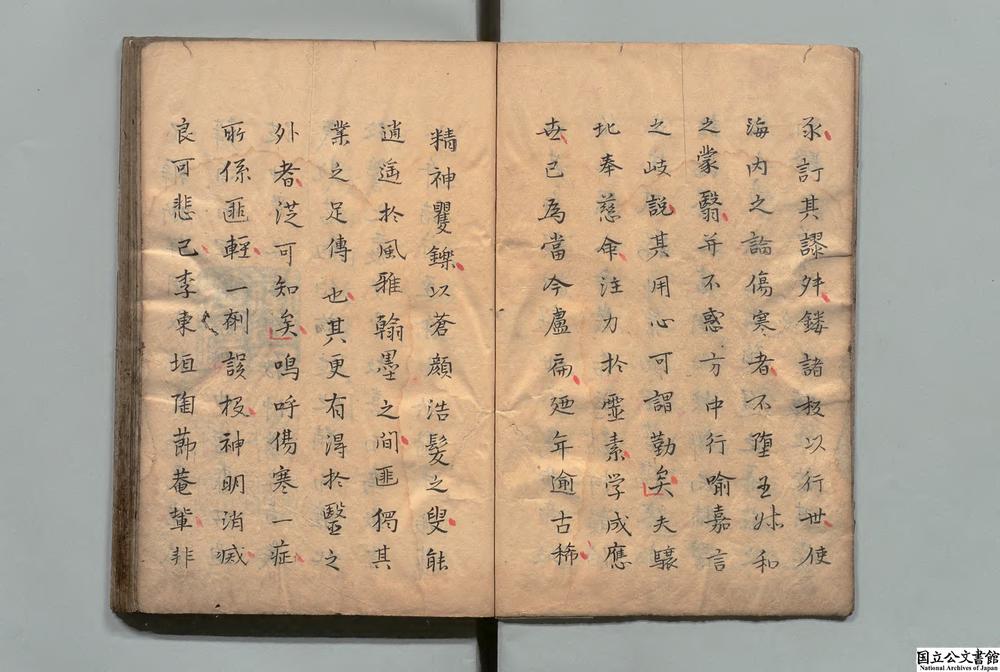 永訂其謬舛鏤諸板以行世使
海内之論傷寒者不墮王姝和
之蒙翳并不惑方中行喻嘉言
之歧說其用心可謂勤矣夫驤
北奉慈命注力於霊素学成應
世已為當今盧扁廼年逾古稀
精神矍鑠以蒼顔浩髮之叟能
逍遥於風雅翰墨之間匪獨其
業之足傳也其更有淂於醫之
外者従可知矣嗚呼傷寒一症
所係匪輕一劑誤投神明消滅
良可悲已李東垣陶節菴輩非
国立公文書館
National Archives of Japan